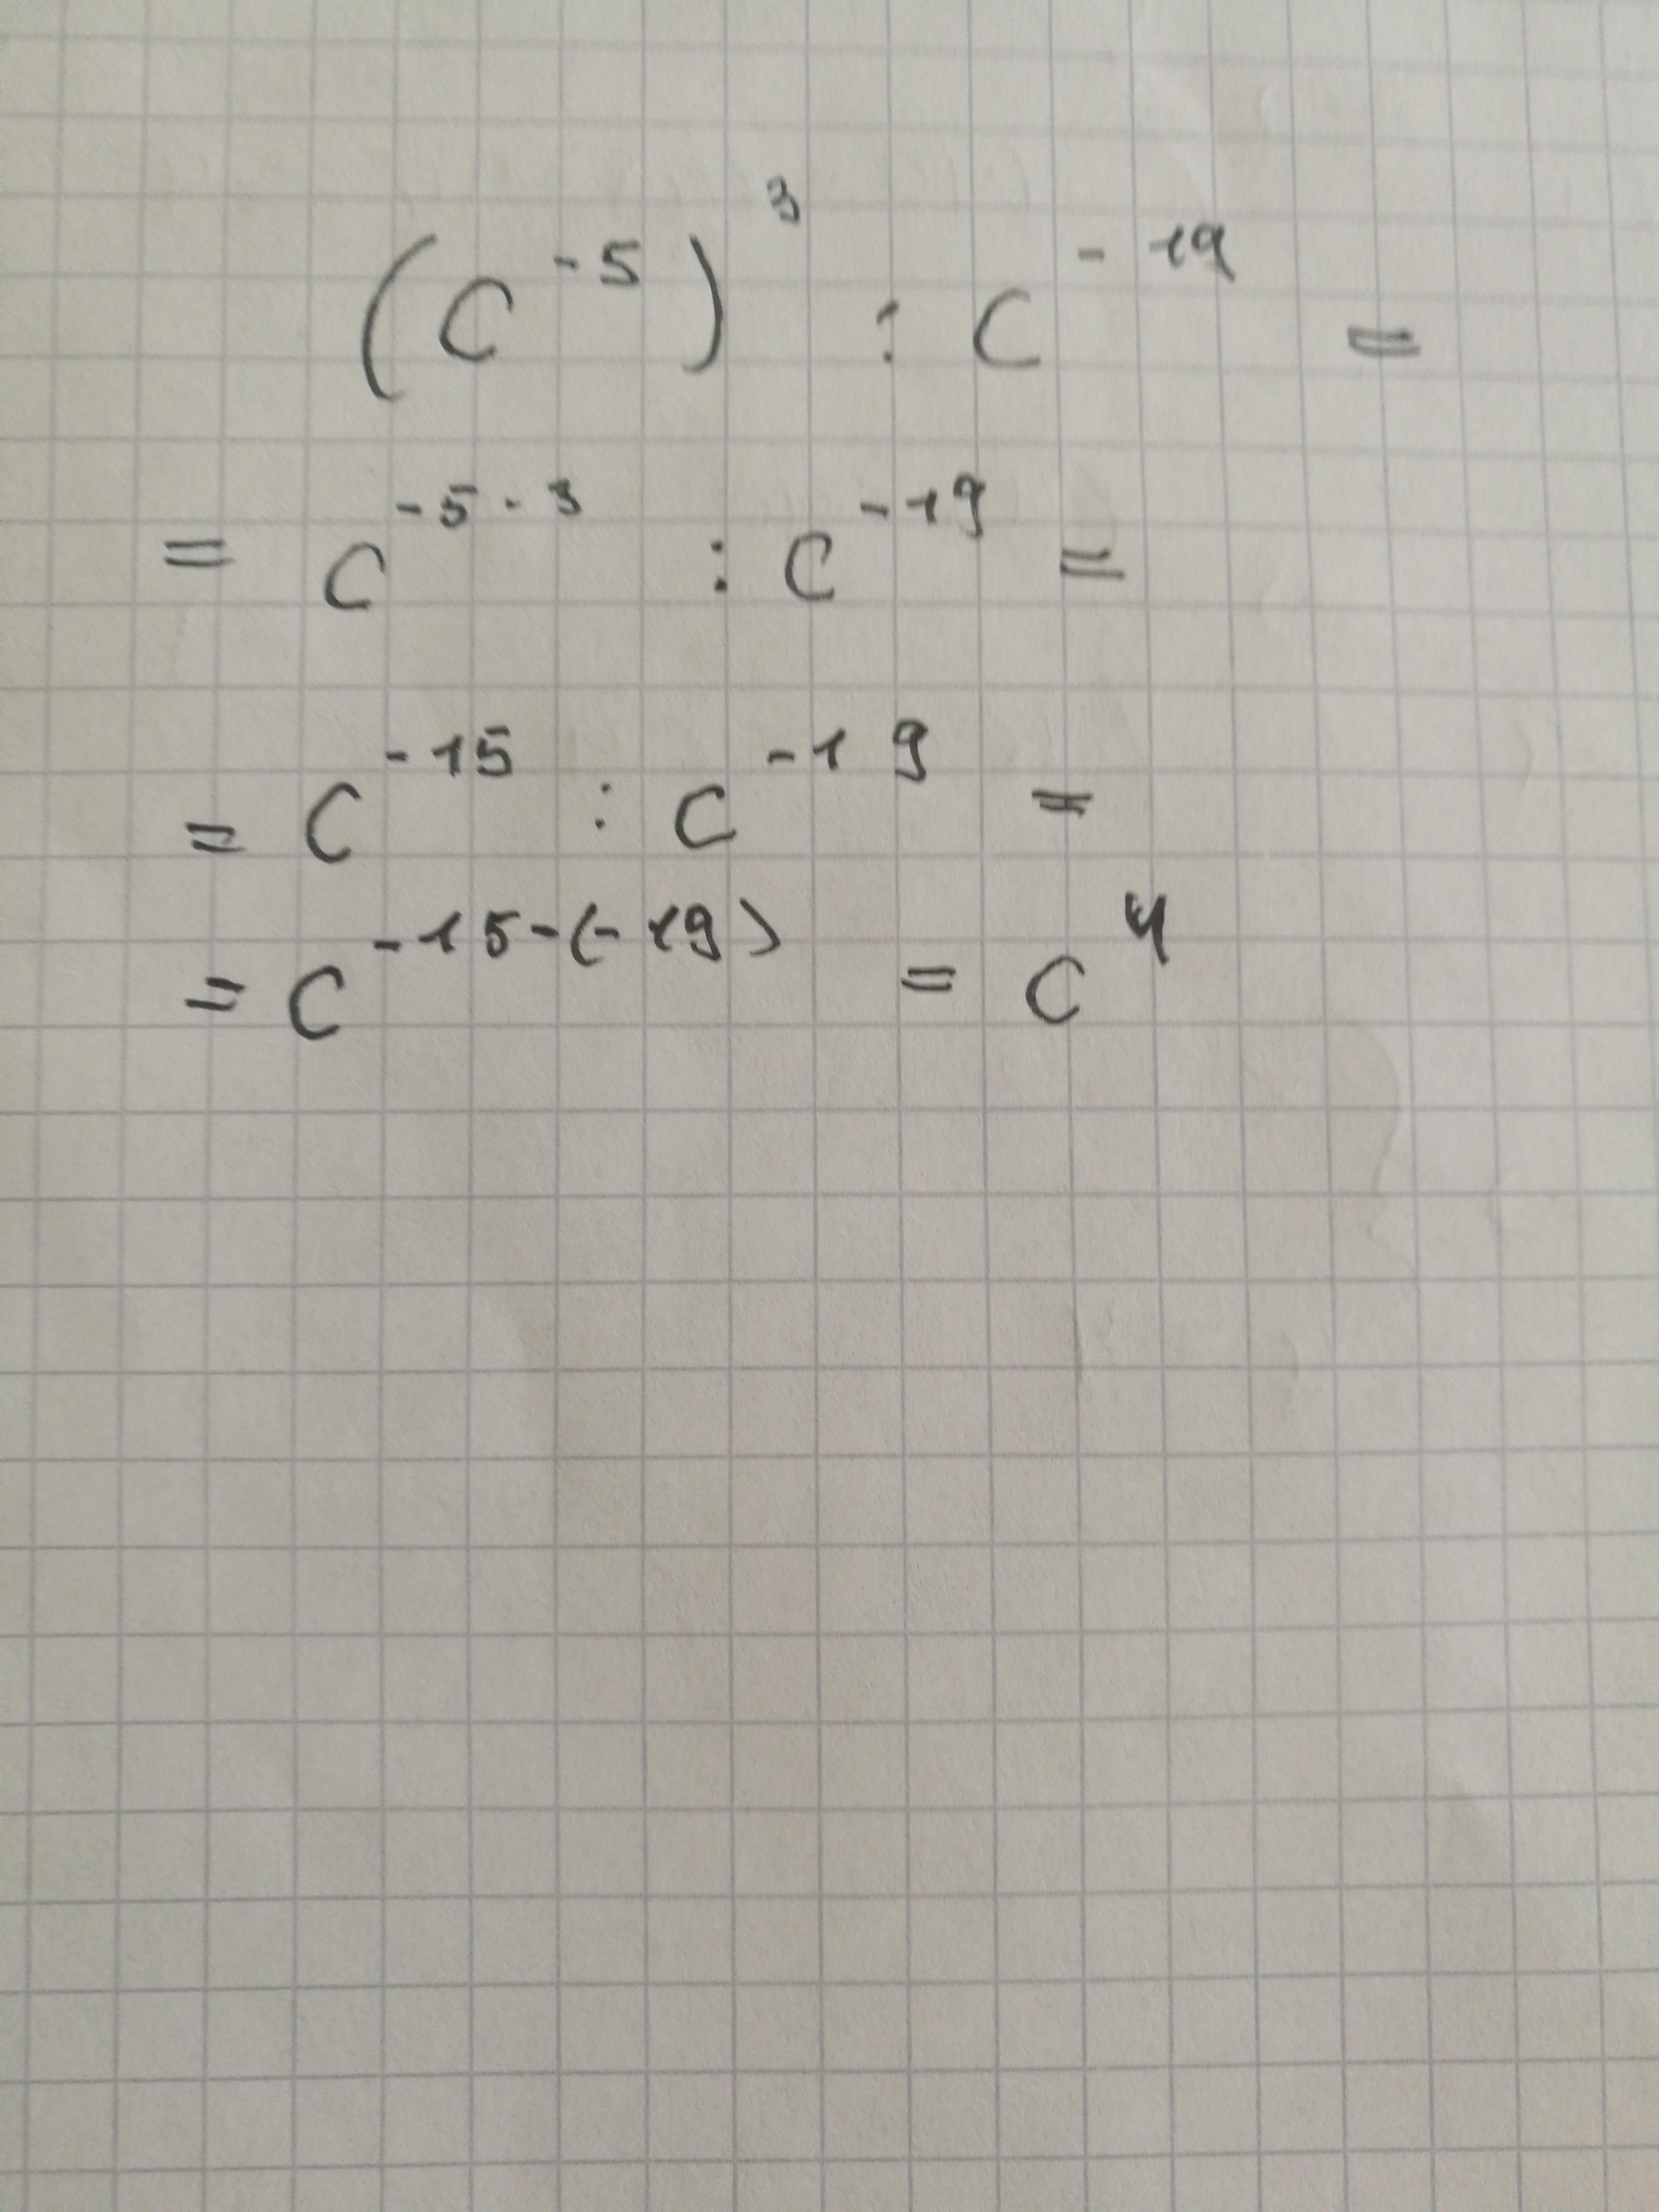 (C⁻⁵)³ : C⁻¹⁹ =
= C⁻⁵·³ : C⁻¹⁹ =
= C⁻¹⁵ : C⁻¹⁹ =
= C⁻¹⁵⁻⁽⁻¹⁹⁾ = C⁴